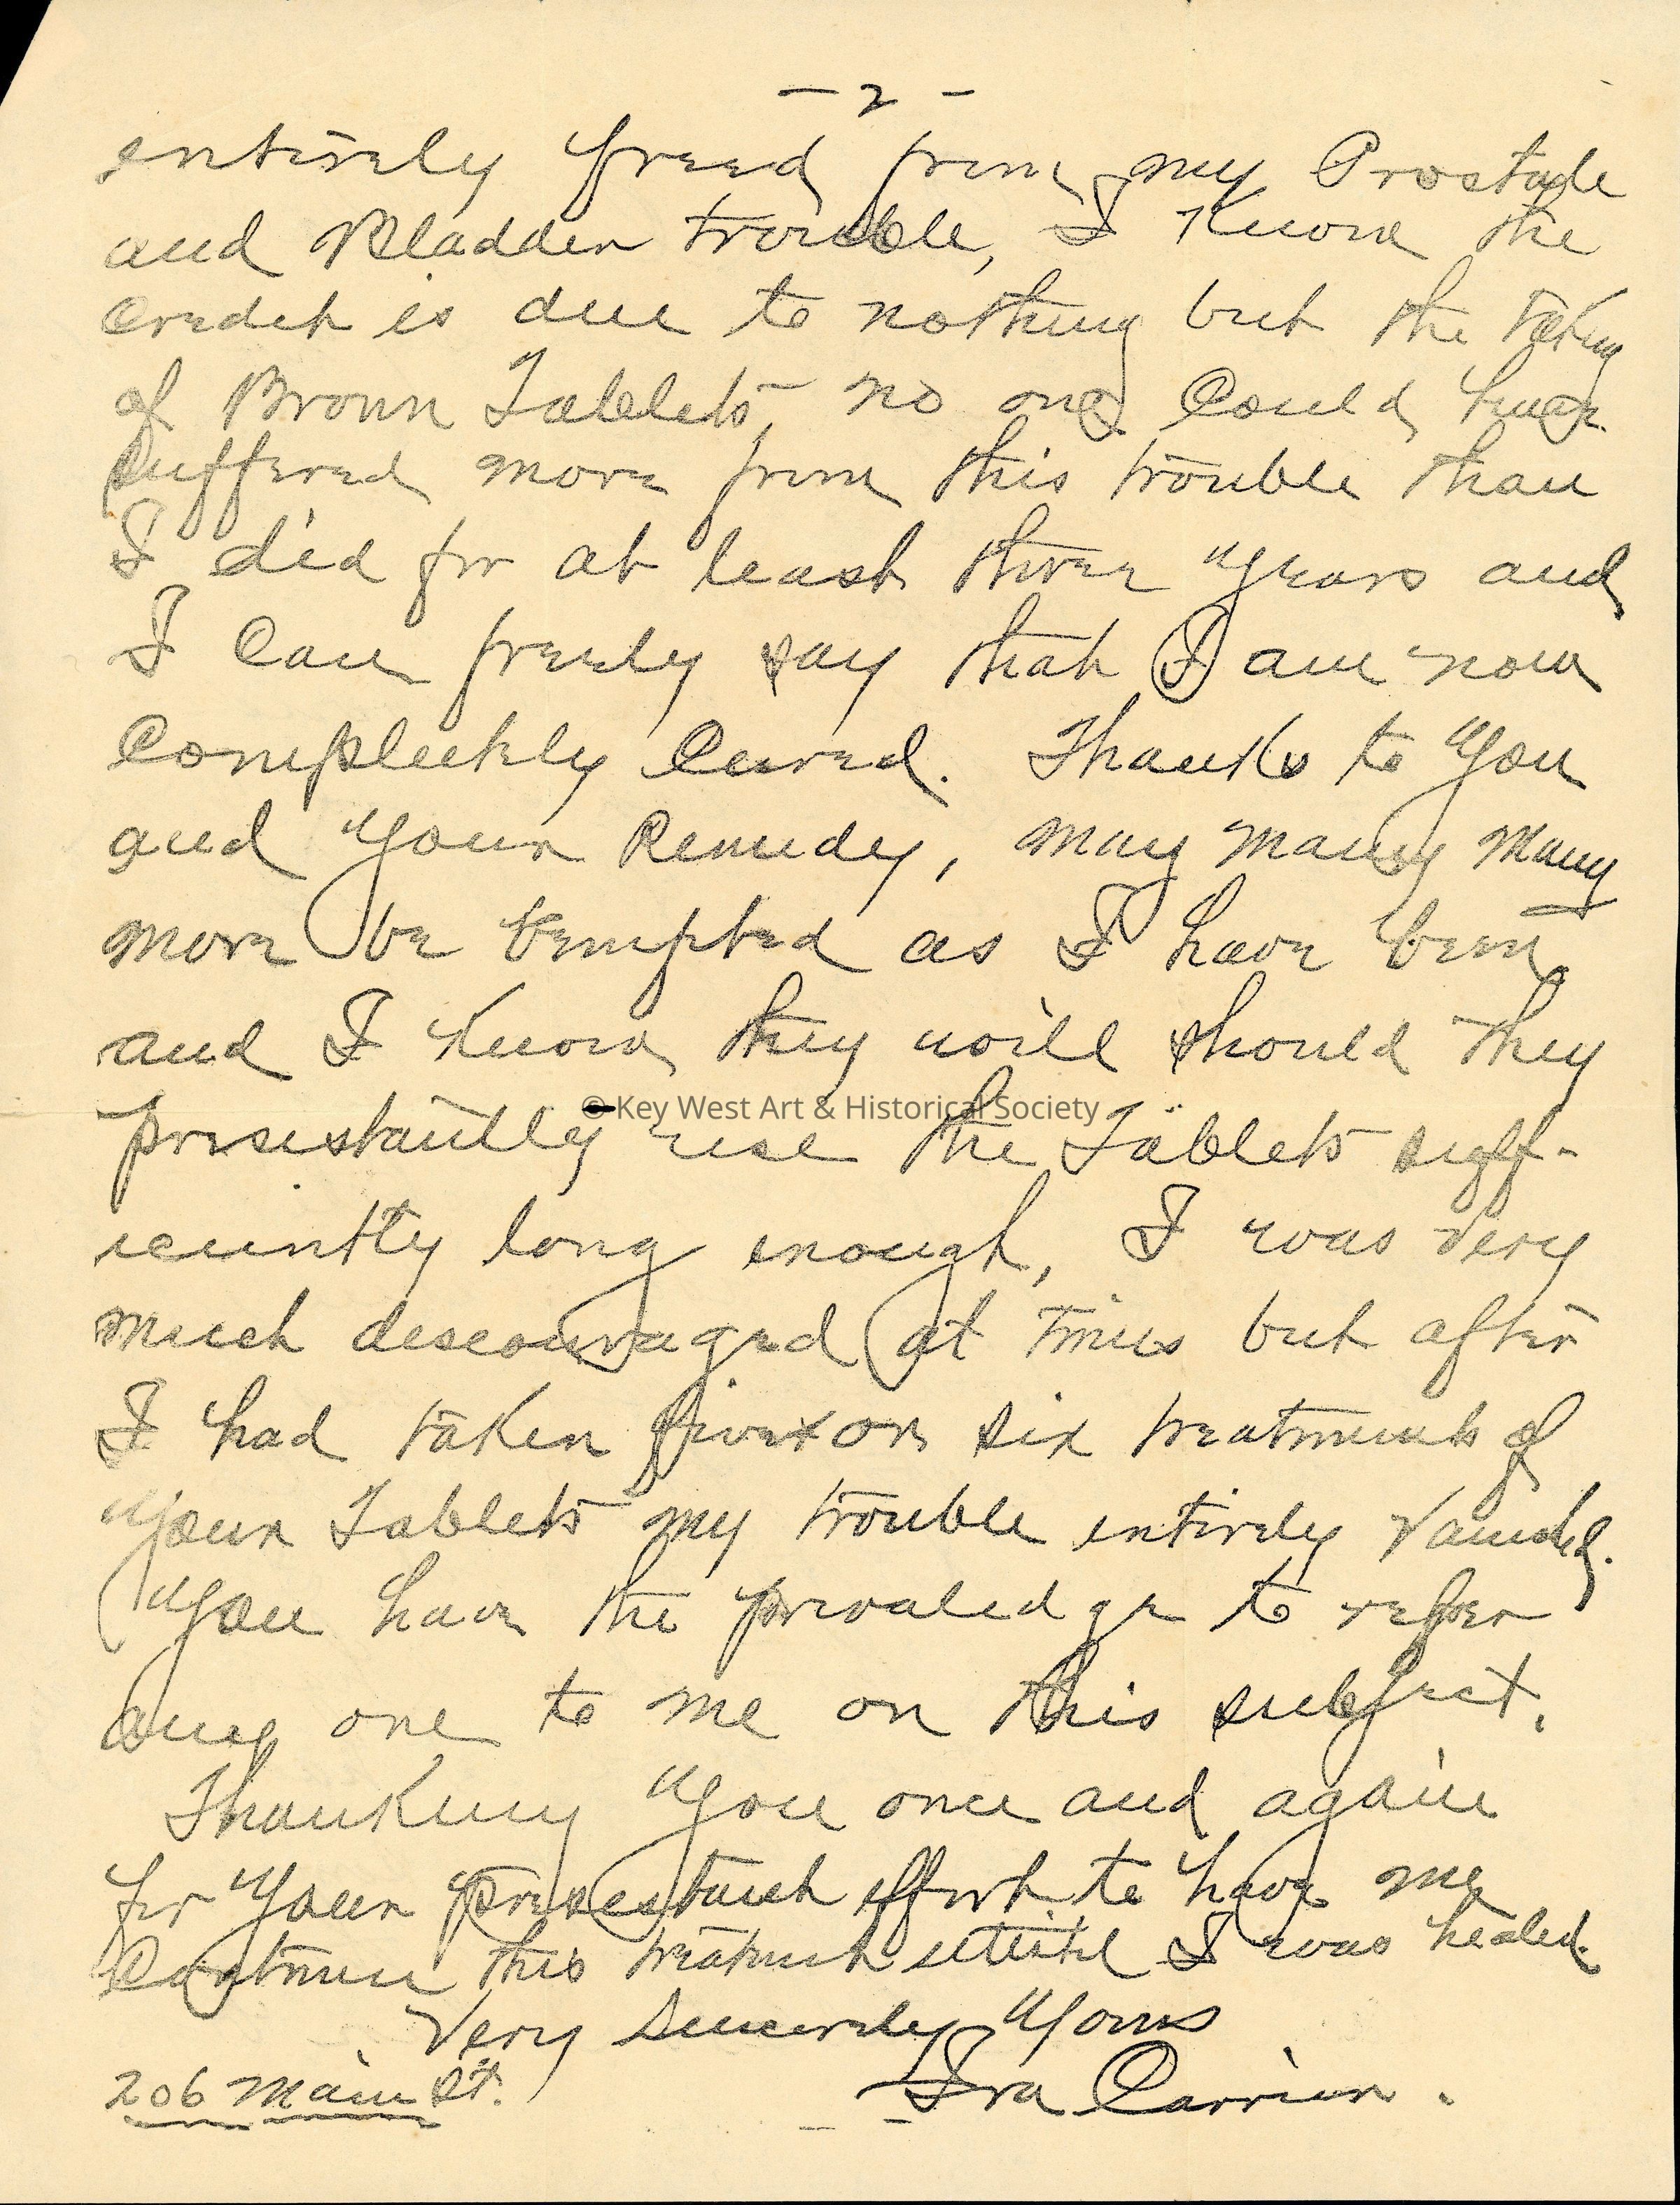 - 2 -
entirely freed from my Prostate
and Bladder trouble, I Know the
Credit is due to nothing but the taking
of Brown Tablets, no one Could have
suffered more from this trouble than
I did for at least three years and
I Can freely say that I am now
Compleetely Cured. Thanks to you
and your Remedy, may many many
more be tempted as I have been
and I Know they will should they
presistantly use the Tablets suff-
© Key West Art & Historical Society
iciently long enough, I was very
much descouraged at times but after
I had taken five or six treatments of
your Tablets my trouble entirely vanished.
you have the prevaledge to refer
any one to me on this subject.
Thanking you once and again
for your presestant effort to have me
this treatment I was healed.
Very Sincerely yours
206 Main St. Ira Carrier.